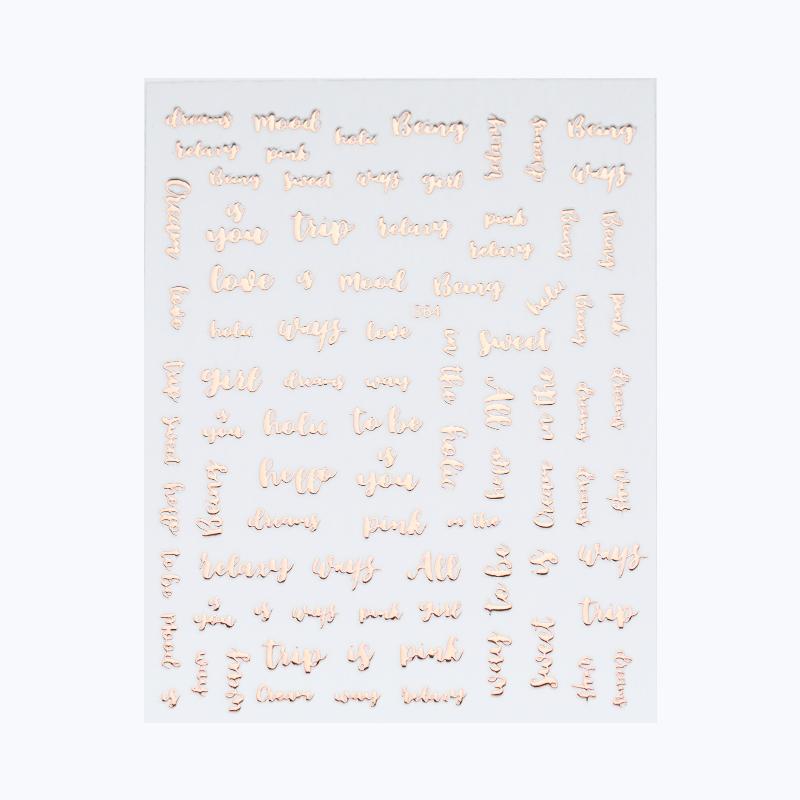 dreams Mood holic Being relaxy dreams Being
relaxy pink
Being Sweet ways girl ways
Cream
is
you trip relaxy pink Being Being
relaxy
love is Mood Being
holic
love holic ways love 064 in the Sweet Being pink
trip girl dreams way All in the dreams dreams
is
you holic to be
Sweet holic
hello is
you hello Cream dreams way
hello Being dreams pink in the
relaxy ways All to be is ways
to be
is
you is ways pink girl trip
Mood trip is pink ways Sweet
way Being way dreams
is Cream way relaxy